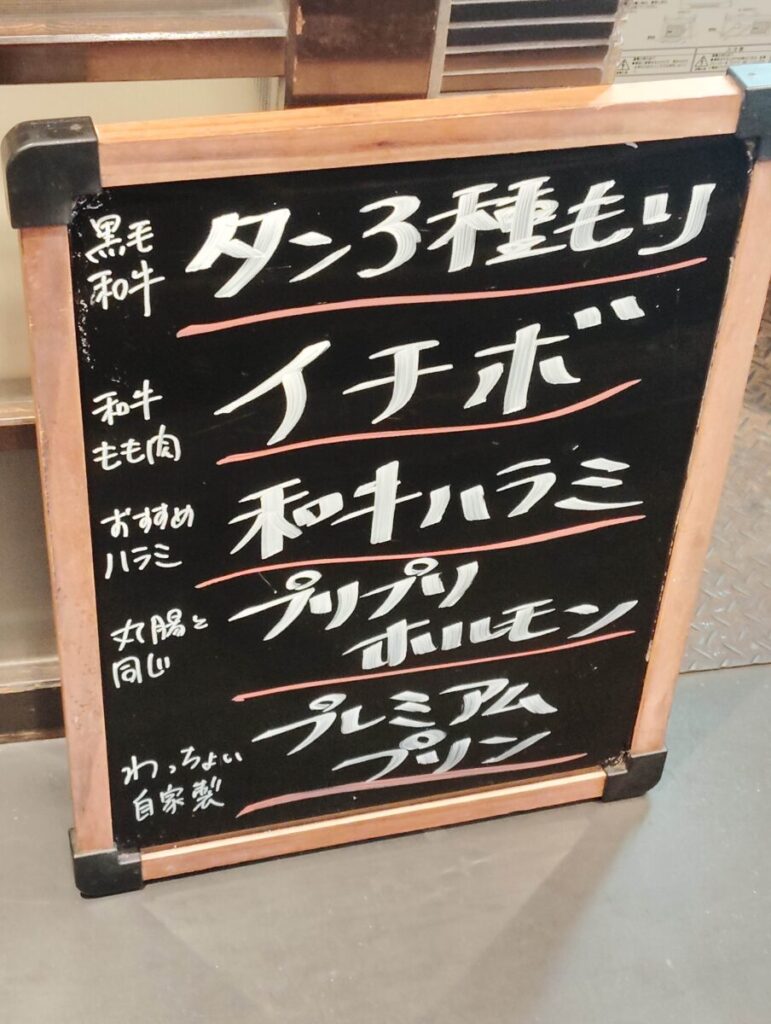 黒毛
和牛
タン3種もり
和牛
もも肉
イチボ
おすすめ
ハラミ
和牛ハラミ
丸腸と
同じ
プリプリ
ホルモン
わっちょい
自家製
プレミアム
プリン